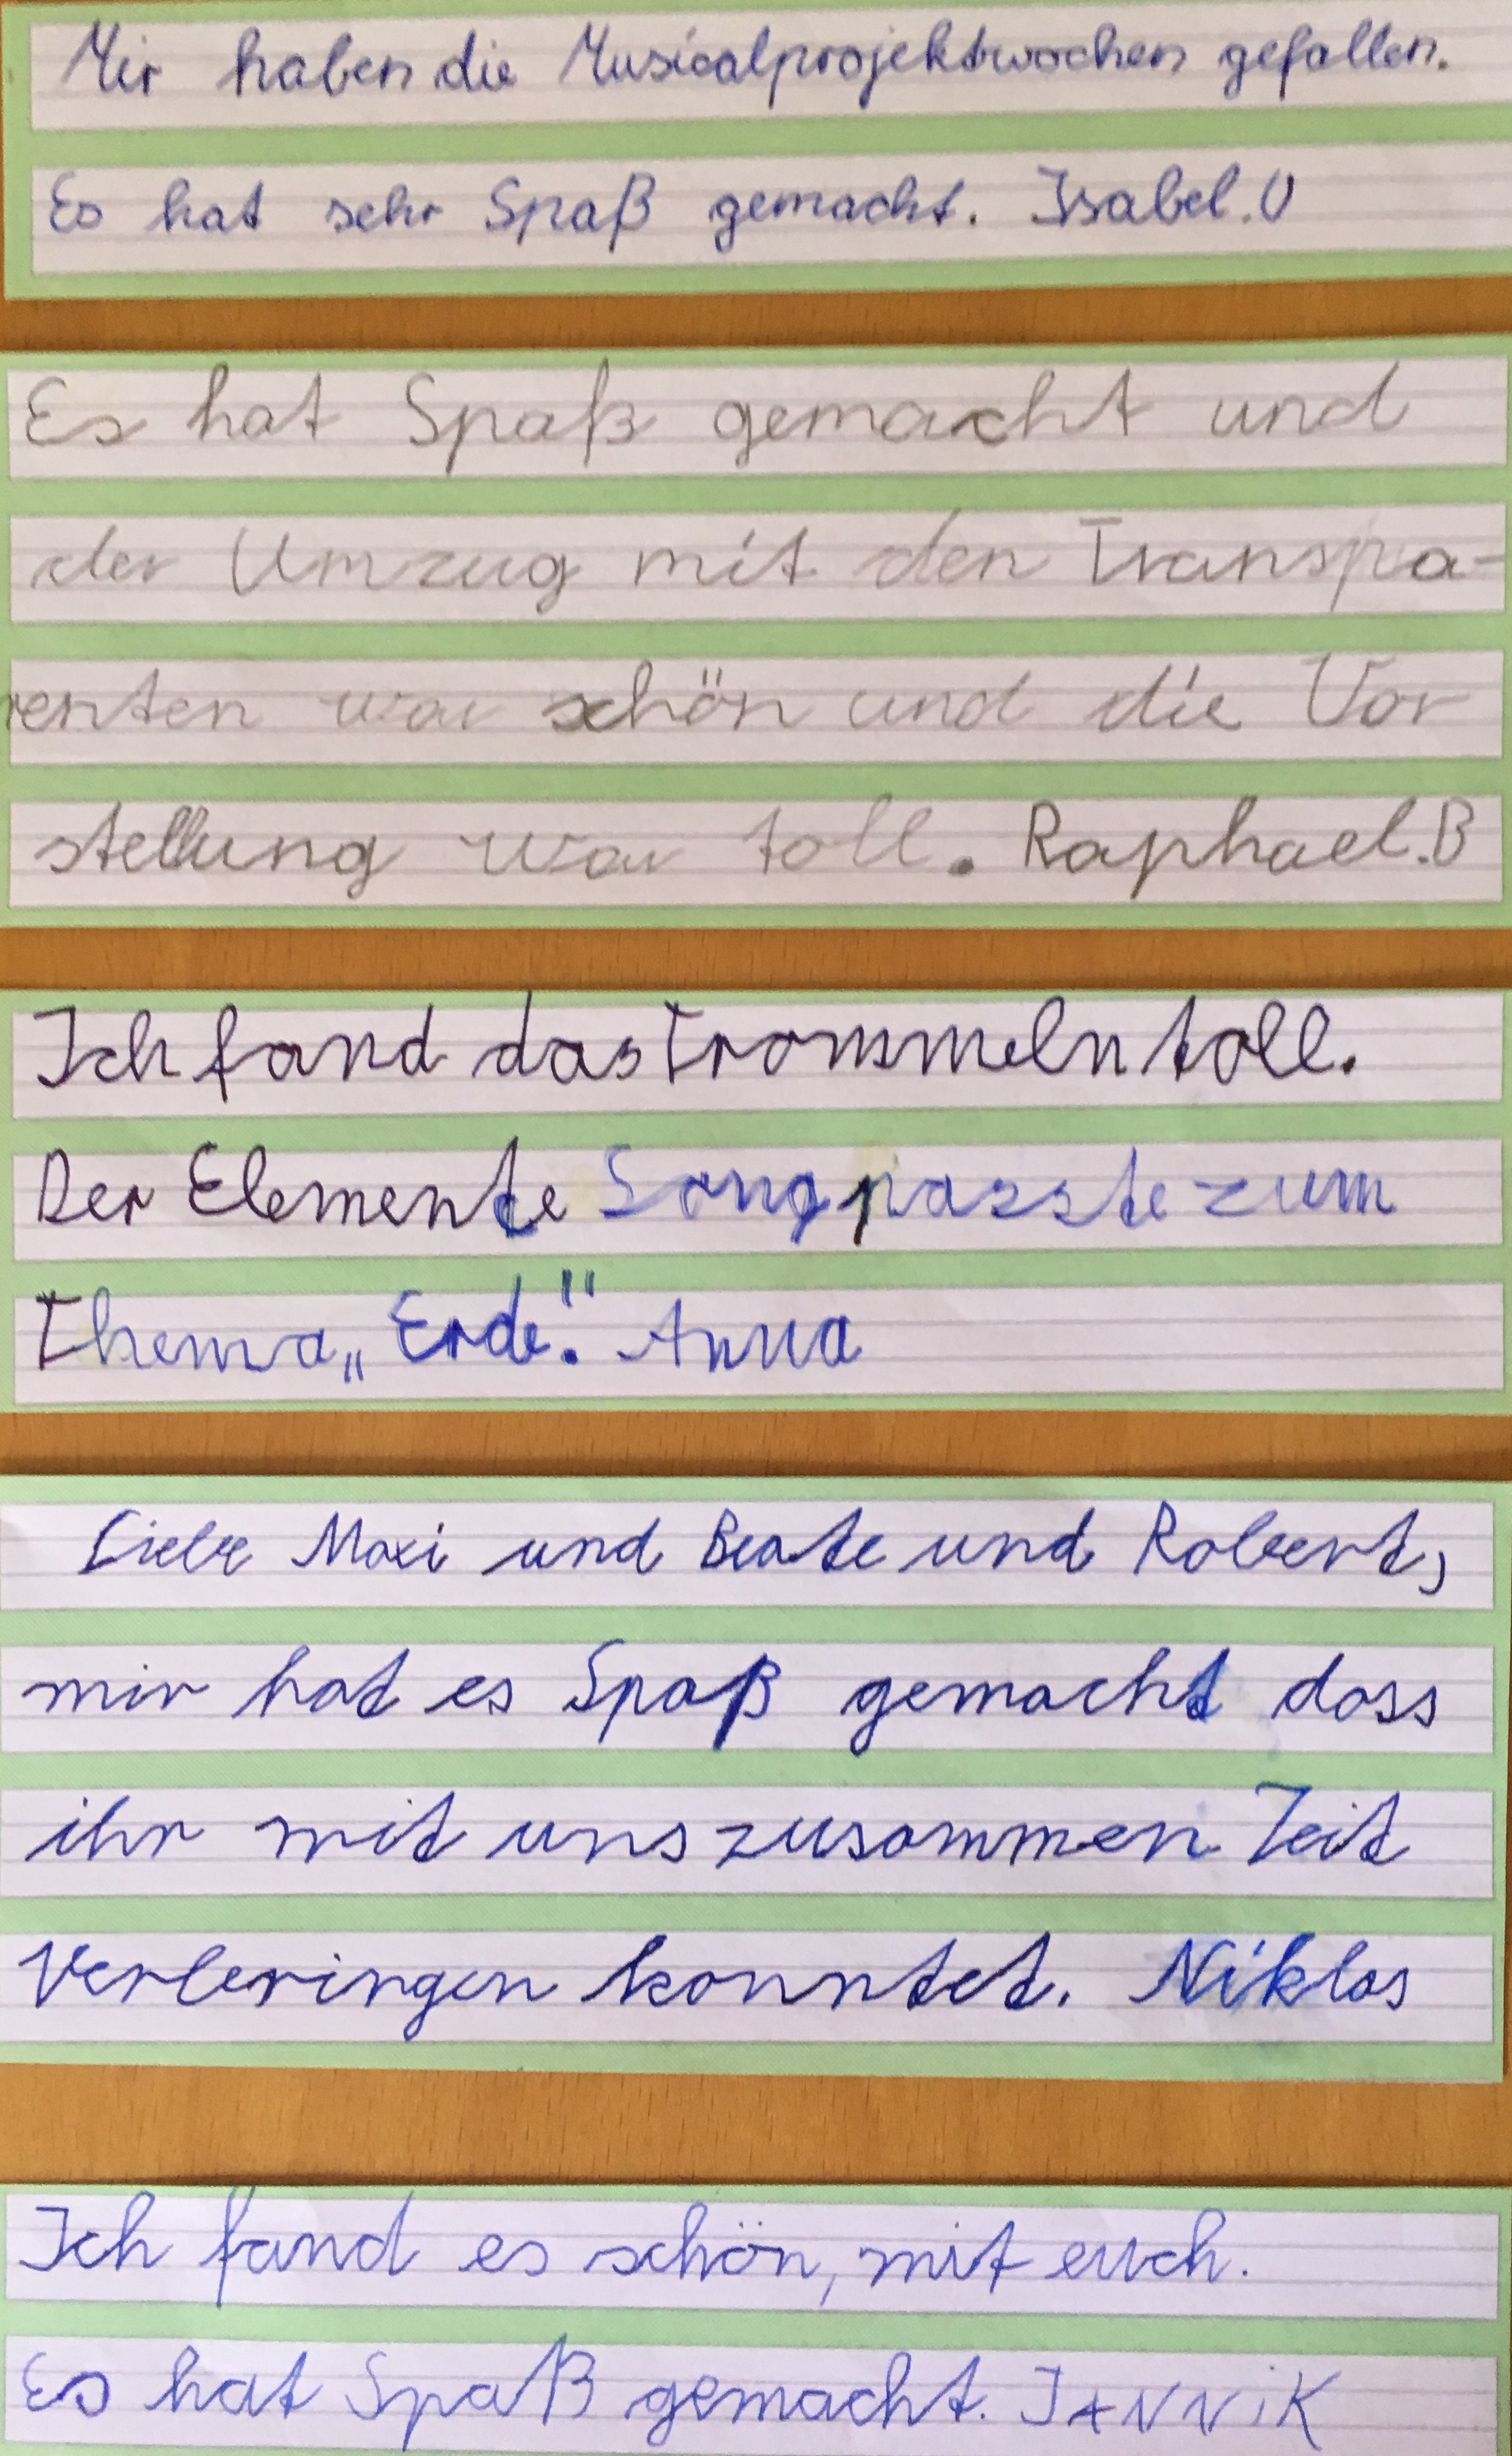 Mir haben die Musicalprojektwochen gefallen.
Es hat sehr Spaß gemacht. Isabel.U
Es hat Spaß gemacht und
der Umzug mit den Transpa-
renten war schön und die Vor
stellung war toll. Raphael.B
Ich fand das Trommeln toll.
Der Elemente Song passte zum
Thema „Erde." Anna
Liebe Maxi und Beate und Robert,
mir hat es Spaß gemacht dass
ihr mit uns zusammen Zeit
Verbringen konntet. Niklas
Ich fand es schön, mit euch.
Es hat Spaß gemacht. JANNiK